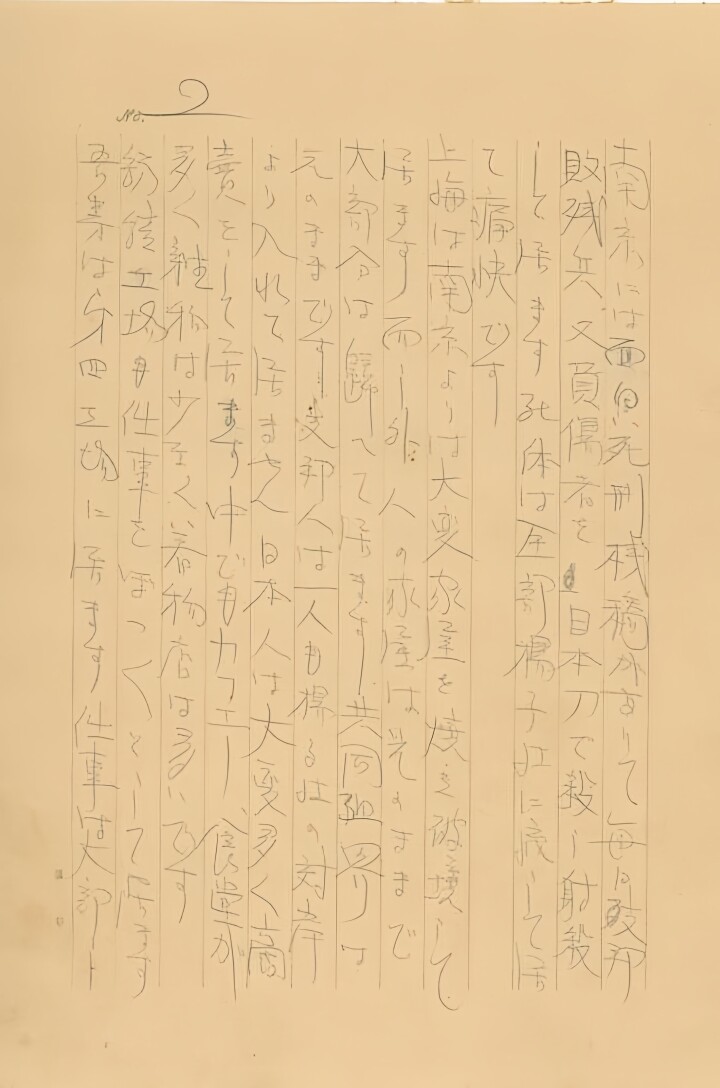 No. 2
南京には面白い死刑桟橋がありて毎日敗残
敗残兵又負傷者を日本刀で殺し射殺
して居ます 死体は全部楊子江に流して居
て痛快です
上海は南京よりは大変家屋を焼き破壊して
居ます 而し外人の家屋は元のままで
大部分は歸へて居ます 共同租界は
元のままです 支那人は一人も楊子江の対岸
より入れて居ません 日本人は大変多く商
賣をして居ます 中でもカフエー、食堂が
多く雑物は少なく 着物店は多いです
紡績工場も仕事をぼつ〱として居ます
吾等は第四工場に居ます 仕事は大部